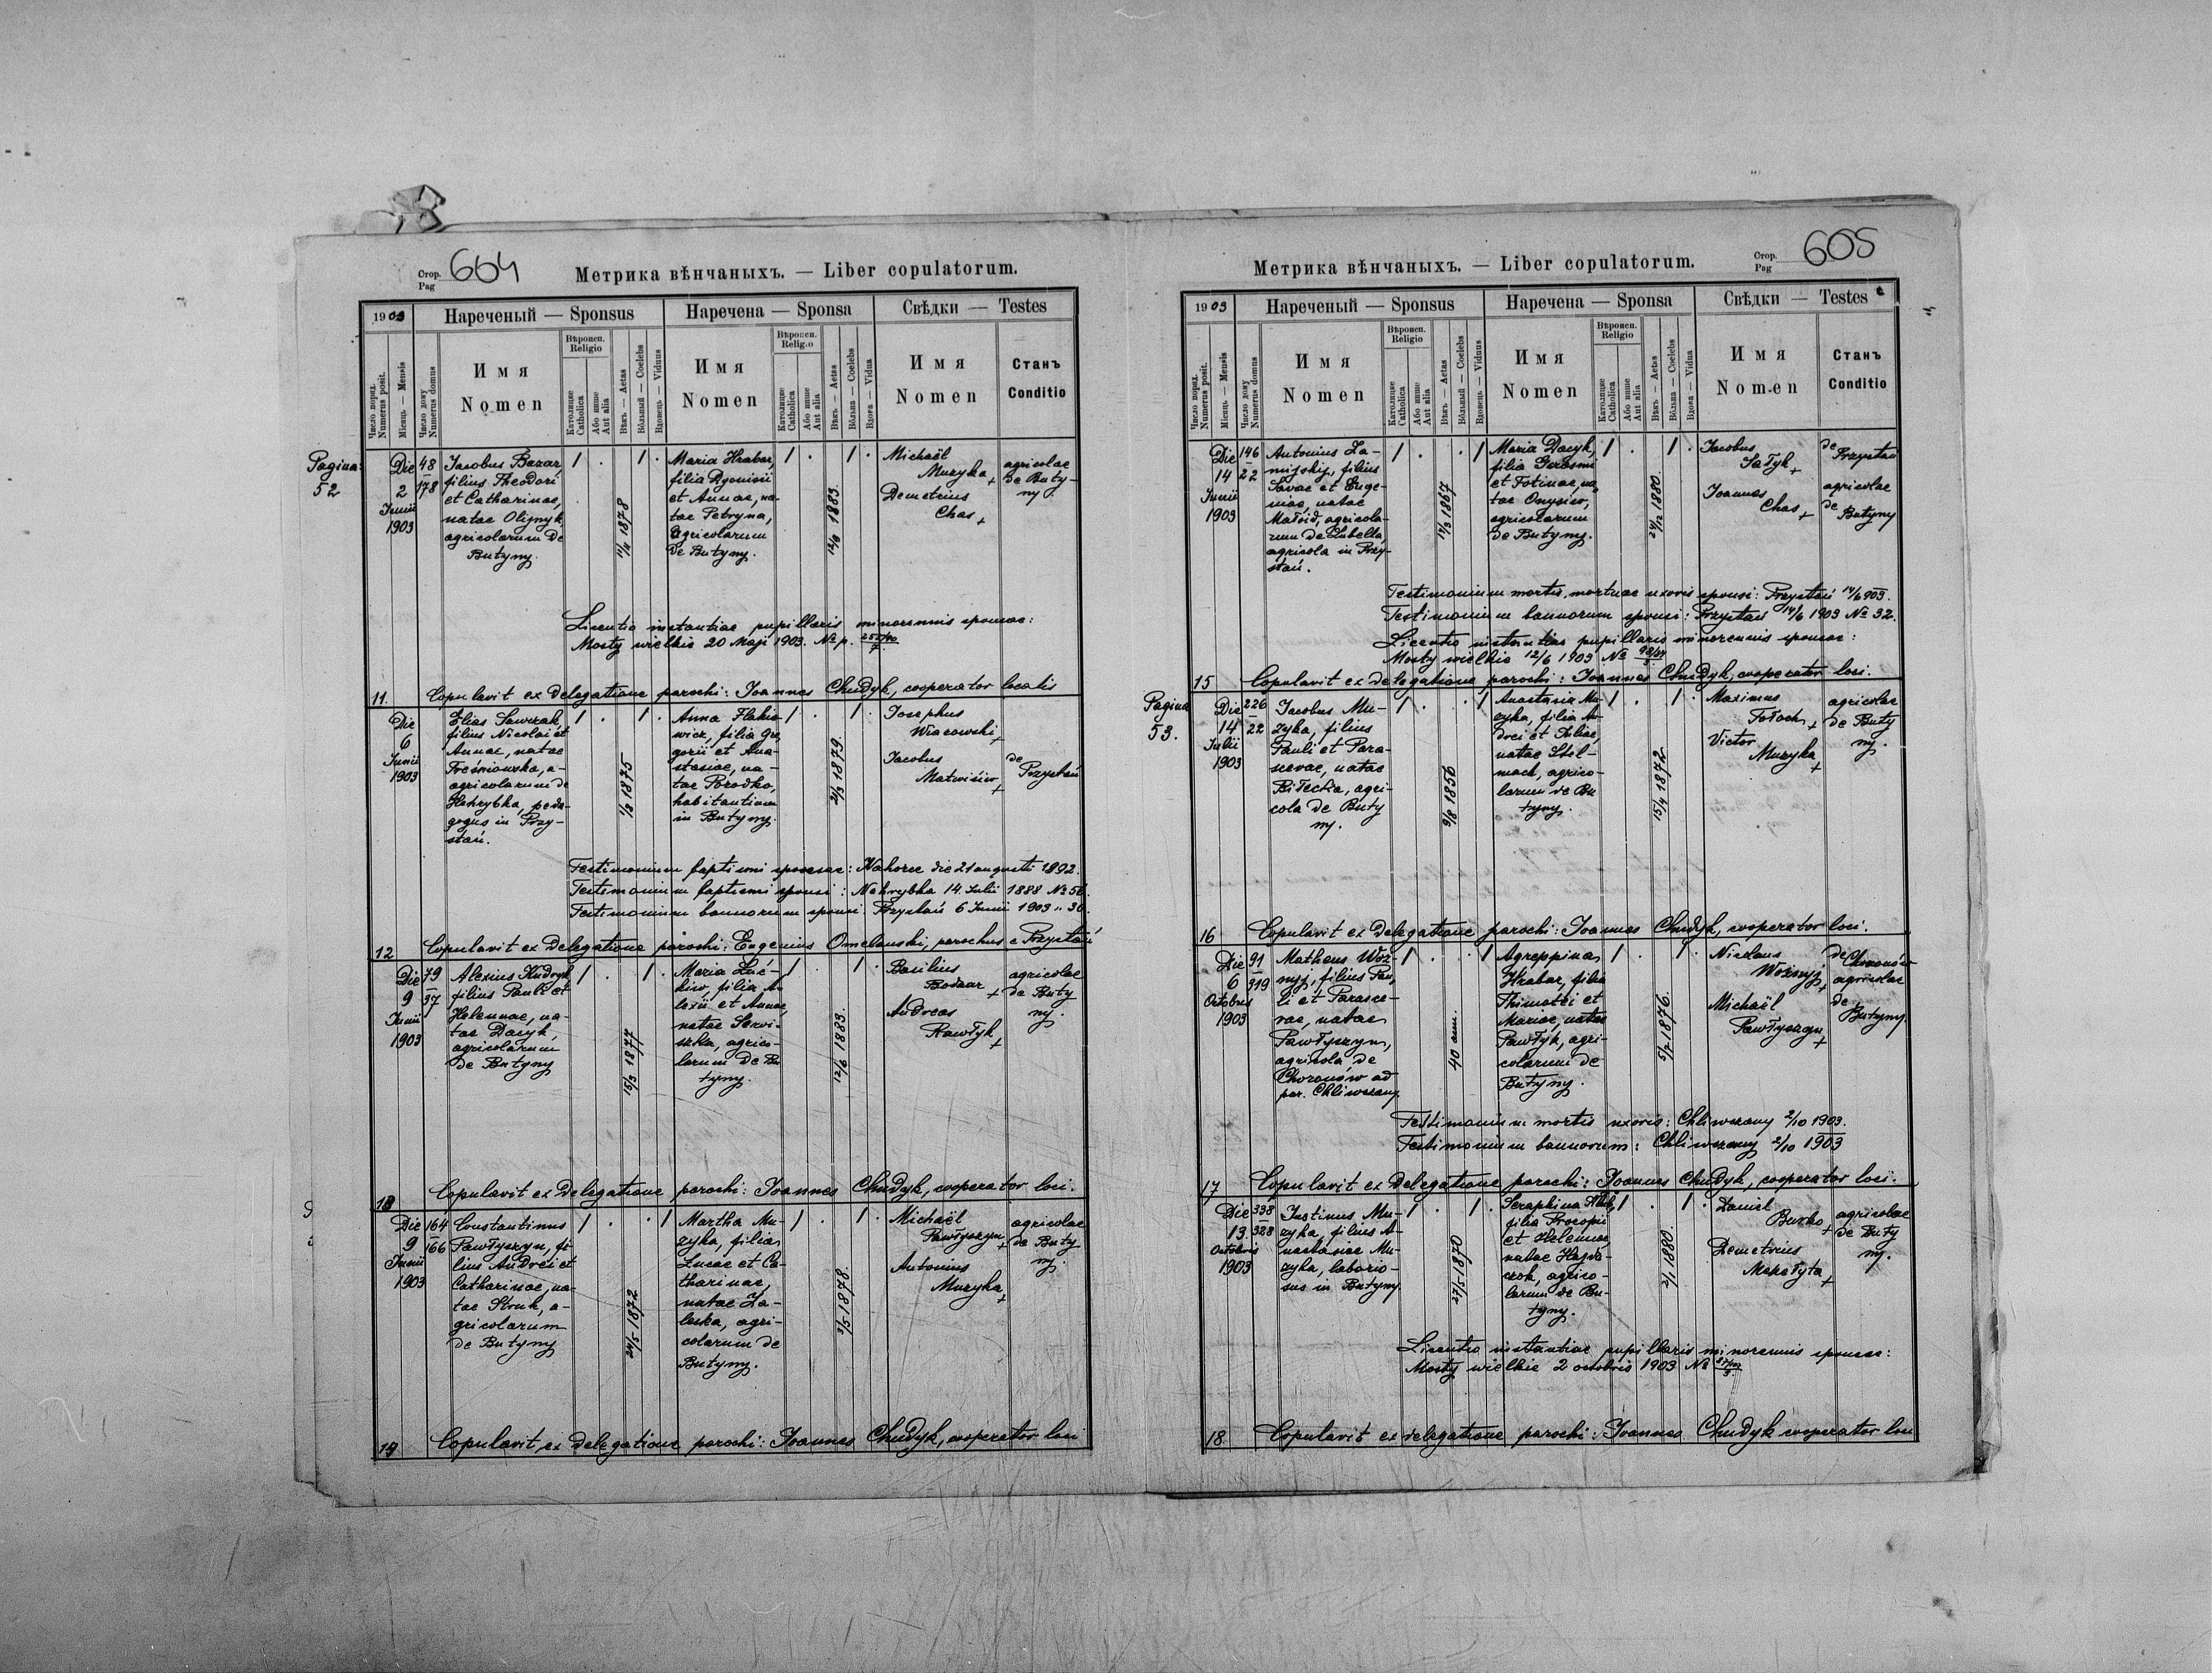 Стор. Pag 604
Метрика вѣнчаныхъ. — Liber copulatorum.
1903
Нареченый — Sponsus
Наречена — Sponsa
Свѣдки — Testes
Число поряд. Numerus posit.
Мѣсяць — Mensis
Число дому Numerus domus
Имя Nomen
Вѣроисп. Religio
Католицке Catholica
Або инше Aut alia
Вѣкъ — Aetas
Вôльный — Coelebs
Вдовець — Viduus
Имя Nomen
Вѣроисп. Religio
Католицке Catholica
Або инше Aut alia
Вѣкъ — Aetas
Вôльна — Coelebs
Вдова — Vidua
Имя Nomen
Станъ Conditio
Pagina
52
Die 2 Junii 1903
48 178
Jacobus Bazar,
filius Theodori
et Catharinae,
natae Olijnyk,
agricolarum de
Butyny.
1 . 1 .
Maria Hrabar,
filia Dyonisii
et Annae, na-
tae Petryna,
agricolarum
de Butyny.
1 . 1 .
Michaël
Muzyka +
Demetrius
Chas +
agricolae
de Buty-
ny.
Licentia instantiae pupillaris minorennis sponsae:
Mosty wielkie 20 Maji 1903. № p.
11. Copulavit ex delegatione parochi: Joannes Chudyk, cooperator localis
Die 6 Junii 1903
Elias Sawczak,
filius Nicolai et
Annae, natae
Treśniowska, a-
agricolarum de
Nehrybka, peda-
gogus in Przy-
stań.
1 . 1 .
1/8 1875
Anna Flakie-
wicz, filia Gre-
gorii et Ana-
stasiae, na-
tae Porodko,
habitantium
in Butyny.
1 . 1 .
2/3 1879
Josephus
Wiacowski +
Jacobus
Matwiów +
de Przystań
Testimonium baptismi sponsae: Nahorce die 21 augusti 1892.
Testimonium baptismi sponsi: Nehrybka 14. Julii 1888 № 56.
Testimonium bannorum sponsi: Przystań 6 Junii 1903 " 30.
12 Copulavit ex delegatione parochi: Eugenius Omelanski, parochus e Przystań
Die 9 Junii 1903
79 37
Alexius Kudryk,
filius Pauli et
Helennae, na-
tae Dacyk,
agricolarum
de Butyny
1 . 1 .
15/3 1877
Maria Luć-
kiw, filia A-
lexii et Annae,
natae Serwi-
szka, agrico-
larum de Bu
tyny.
1 . 1 .
12/6 1883.
Basilius
Bodnar +
Andreas
Pawłyk +
agricolae
de Buty
ny.
13 Copulavit ex delegatione parochi: Joannes Chudyk, cooperator loci.
Die 9 Junii 1903
164 166
Constantinus
Pawłyszyn, fi-
lius Andrei et
Catharinae, na-
tae Struk, a-
gricolarum
de Butyny
1 . . 1
24/5 1872
Martha Mu-
zyka, filia
Lucae et Ca-
tharinae,
natae Za-
leska, agri-
colarum de
Butyny.
1 . 1 .
3/5 1878.
Michaël
Pawłyszyn +
Antonius
Muzyka +
agricolae
de Buty
ny.
14 Copulavit ex delegatione parochi: Joannes Chudyk, cooperator loci
Стор. Pag 605
Метрика вѣнчаныхъ. — Liber copulatorum.
1903
Нареченый — Sponsus
Наречена — Sponsa
Свѣдки — Testes
Число поряд. Numerus posit.
Мѣсяць — Mensis
Число дому Numerus domus
Имя Nomen
Вѣроисп. Religio
Католицке Catholica
Або инше Aut alia
Вѣкъ — Aetas
Вôльный — Coelebs
Вдовець — Viduus
Имя Nomen
Вѣроисп. Religio
Католицке Catholica
Або инше Aut alia
Вѣкъ — Aetas
Вôльна — Coelebs
Вдова — Vidua
Имя Nomen
Станъ Conditio
Die 14 Junii 1903
146 22
Antonius Za-
mijsky, filius
Savae et Euge-
niae, natae
Matoid, agricola-
rum de Lubella,
agricola in Przy-
stań.
1 . . 1
17/3 1867
Maria Dacyk,
filia Gerasimi
et Fotinae, na-
tae Onysiw,
agricolarum
de Butyny.
1 . 1 .
24/12 1880.
Jacobus
Sałyk +
Joannes
Chas +
de Przystań
agricolae
de Butyny
Testimonium mortis, mortuae uxoris sponsi: Przystań 14/6 903.
Testimonium bannorum sponsi: Przystań 14/6 1903 № 32.
Licentia instantiae pupillaris minorennis sponsae:
Mosty wielkie 12/6 1903 №
15 Copulavit ex delegatione parochi: Joannes Chudyk, cooperator loci.
Pagina
53.
Die 14 Julii 1903
226 22
Jacobus Mu-
zyka, filius
Pauli et Para-
scevae, natae
Biłecka, agri-
cola de Buty
ny.
1 . . 1
9/8 1856
Anastasia Mu-
zyka, filia An-
drei et Juliae,
natae Stel-
mach, agrico-
larum de Bu
tyny.
1 . 1 .
15/4 1872
Maximus
Tołoch +
Victor
Muzyka +
agricolae
de Buty
ny.
16 Copulavit ex delegatione parochi: Joannes Chudyk, cooperator loci.
Die 6 Octobris 1903
91 319
Matheus Woz-
nyj, filius Pau-
li et Parasce-
vae, natae
Pawłyszyn,
agricola de
Choronów ad
par. Chliwczany
1 . . 1
40 ann.
Agreppina
Hrabar, filia
Thimothei et
Mariae, natae
Pawłyk, agri-
colarum de
Butyny.
1 . 1 .
5/7 1876.
Nicolaus
Woźnyj +
Michaël
Pawłyszyn +
de Choronów
agricolae
de Butyny.
Testimonium mortis uxoris: Chliwczany 2/10 1903.
Testimonium bannorum: Chliwczany 2/10 1903
17 Copulavit ex delegatione parochi: Joannes Chudyk, cooperator loci.
Die 13 Octobris 1903
338 328
Justinus Mu-
zyka, filius A-
nastasiae Mu-
zyka, laborio-
sus in Butyny.
1 . 1 .
27/5 1870
Seraphina
filia Procopii
et Helennae,
natae Hajda-
czok, agrico-
larum de Bu-
tyny.
1 . 1 .
2/1 1880.
Daniel
Burko +
Demetrius
Mekełyta +
agricolae
de Buty
ny.
Licentia instantiae pupillaris minorennis sponsae:
Mosty wielkie 2 octobris 1903 №
18. Copulavit ex delegatione parochi: Joannes Chudyk cooperator loci